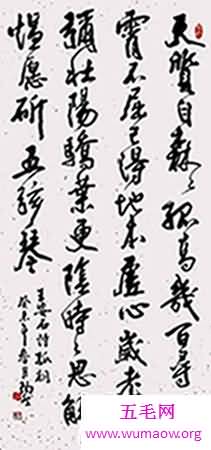 天質自森々孤高幾百尋
霄不屈己得地本虛心歲老
彌壯陽驕葉更陰時々思解
慍願斫五弦琴
王安石詩孤桐
癸未年春月
五毛网
www.wumaow.org